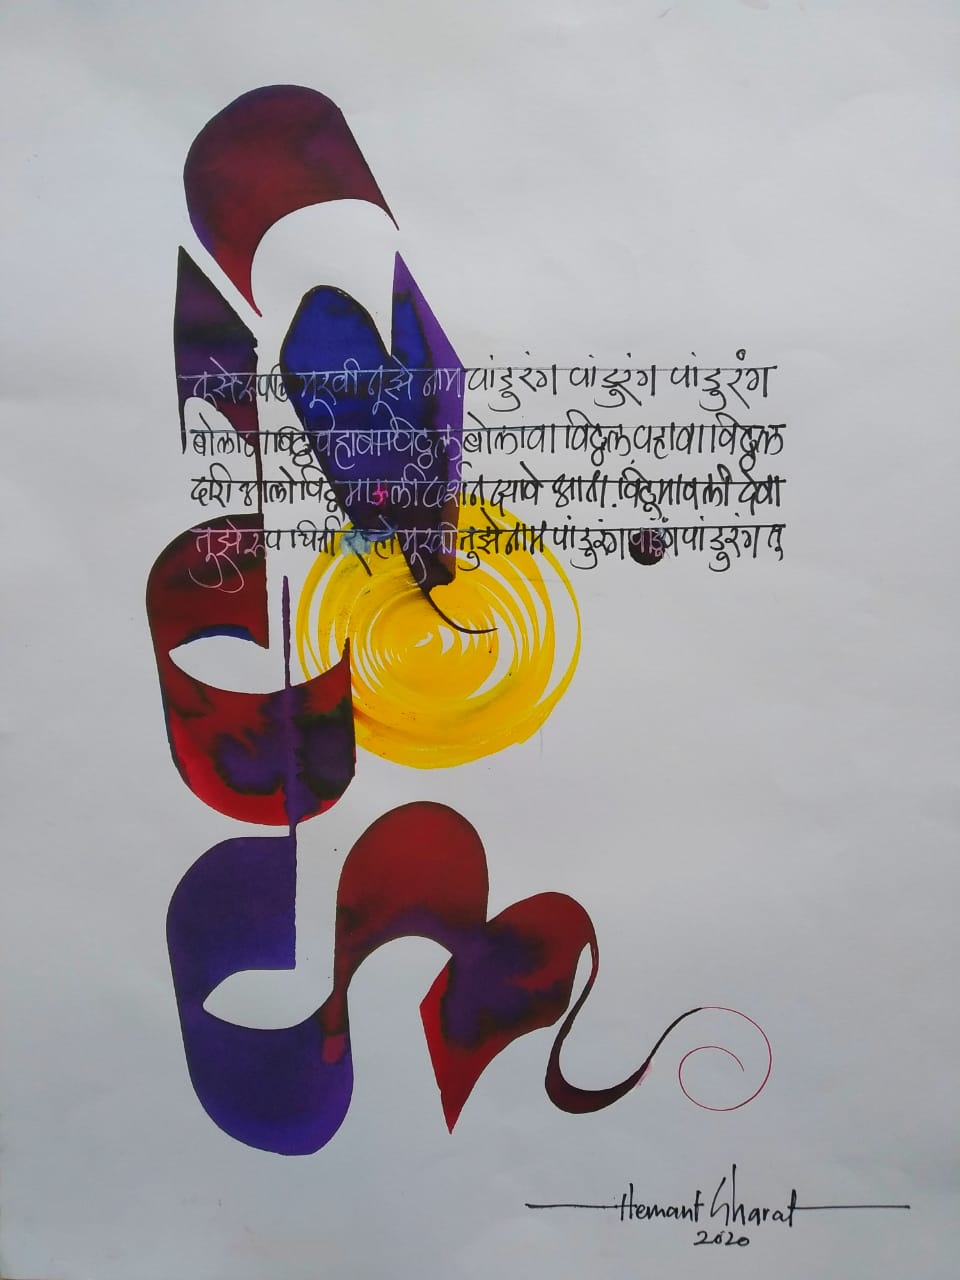 तुझे रूप चित्ती मुखी तुझे नाम पांडुरंग पांडुरंग पांडुरंग
बोलावा विठ्ठल पहावा विठ्ठल बोलावा विठ्ठल पहावा विठ्ठल
दारी आलो विठू माऊली दर्शन द्यावे आता विठू मावली देवा
तुझे रूप चित्ती मुखी तुझे नाम पांडुरंग पांडुरंग पांडुरंग तू
Hemant Gharat
2020